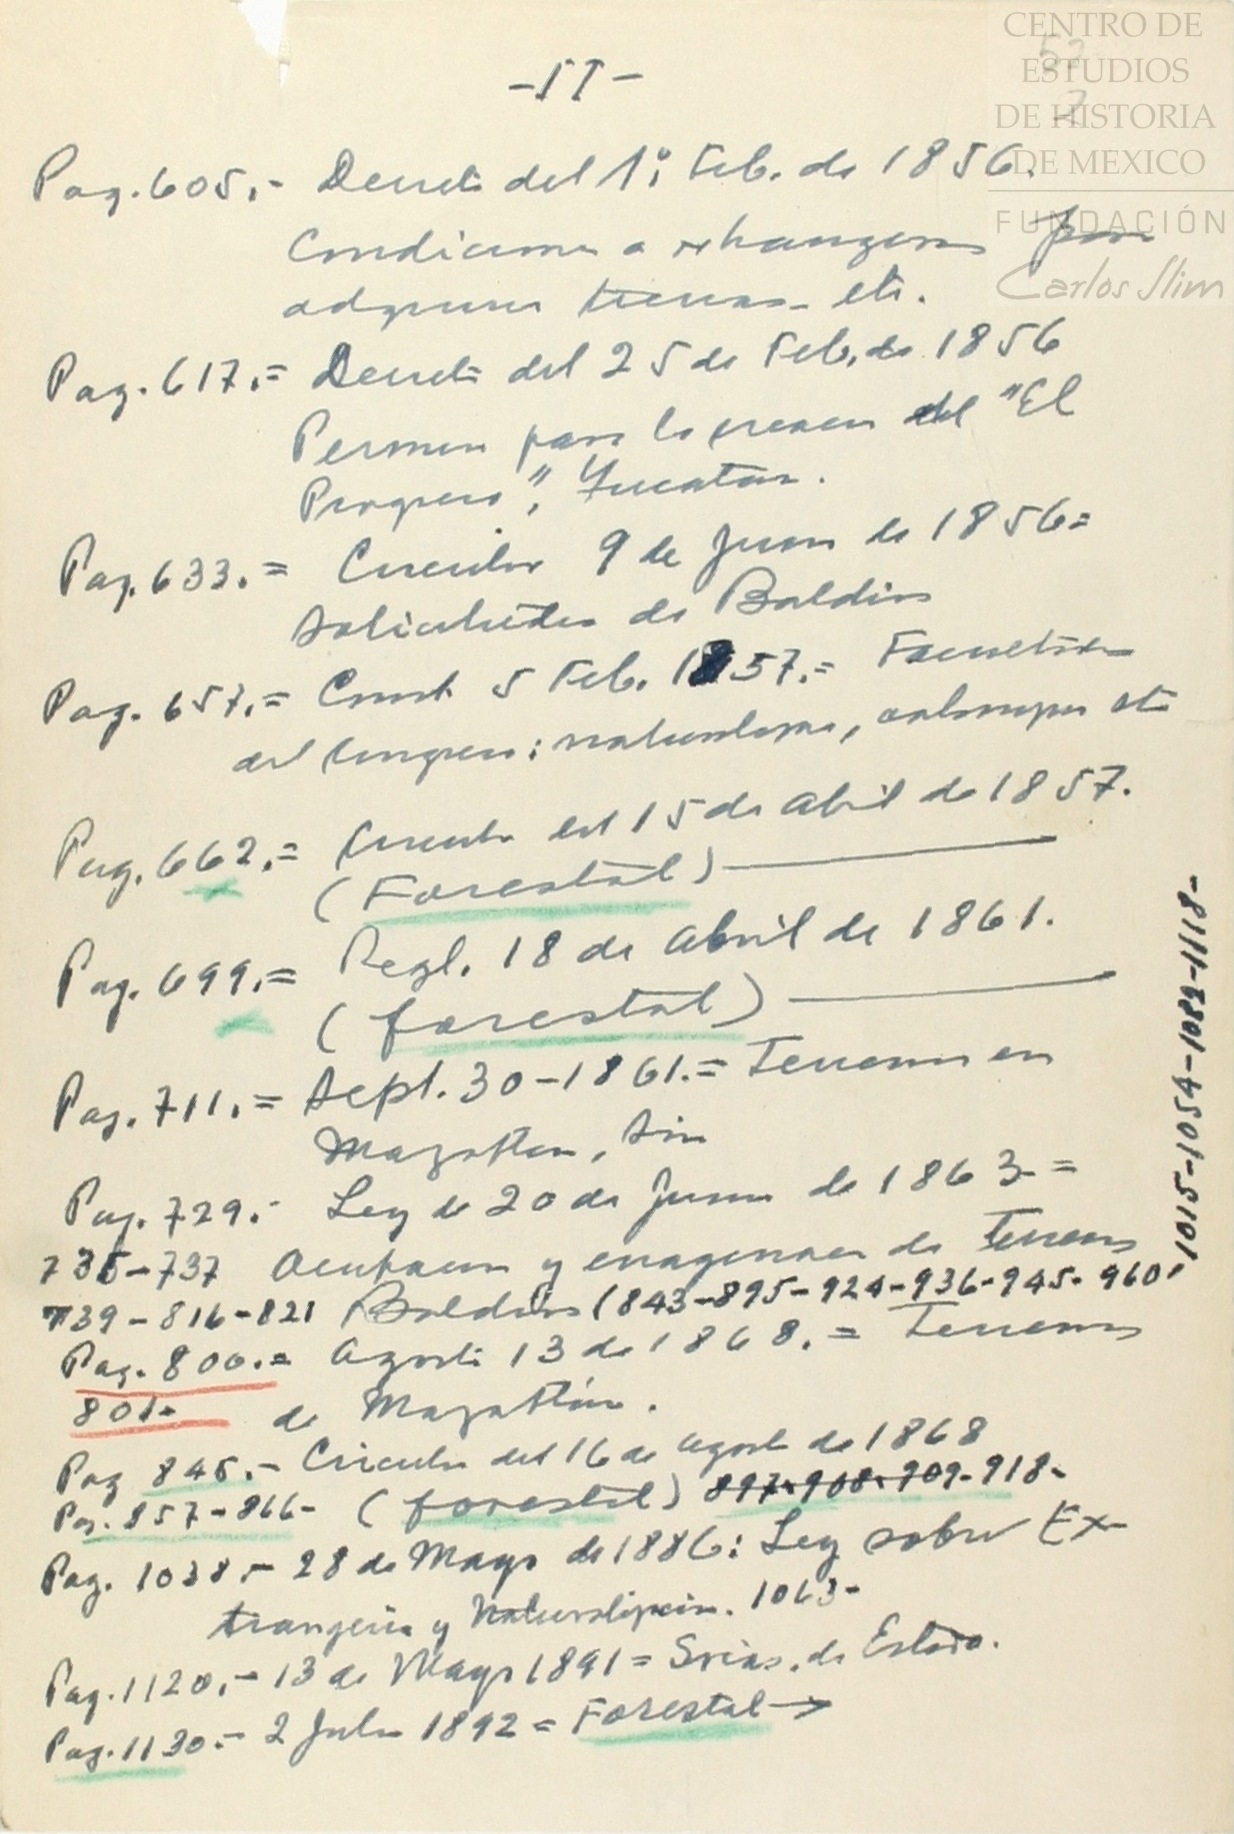 CENTRO DE
ESTUDIOS
DE HISTORIA
DE MEXICO
FUNDACIÓN
Carlos Slim
-II-
Pag. 605.- Decreto del 1º; Feb. de 1856.
Condiciones a extrangeros para
adquirir tierras- etc.
Pag. 617.= Decreto del 25 de Feb. de 1856
Permiso para la del "El
Progreso", Yucatan.
Pag. 633.= Circular 9 de Junio de 1856=
Solicitudes de Baldios
Pag. 657.= Const. 5 Feb. 1857.= Facultades
del Congreso: naturaleza, etc
Pag. 662.= Circular del 15 de Abril de 1857.
(Forestal)
Pag. 699.= Regl. 18 de Abril de 1861.
(forestal)
Pag. 711.= Sept. 30-1861.= Terrenos en
Mazatlan, Sin
Pag. 729.- Ley de 20 de Junio de 1863-=
735-737 Ocupacion y enagenacion de Terrenos
739-816-821 Baldios (843-895-924-936-945-960-
1015-1054-1089-1118-
Pag. 800.= Agosto 13 de 1868.= Terrenos
801- de Mazatlán.
Pag 845.- Circular del 16 de Agosto de 1868
Pag. 857-866- (forestal) 897-908-909-918-
Pag. 1038.- 28 de Mayo de 1886: Ley sobre Ex-
trangeria y Naturalización. 1063-
Pag. 1120.- 13 de Mayo 1891= Srias. de Estado.
Pag. 1130.- 2 Julio 1892= Forestal→